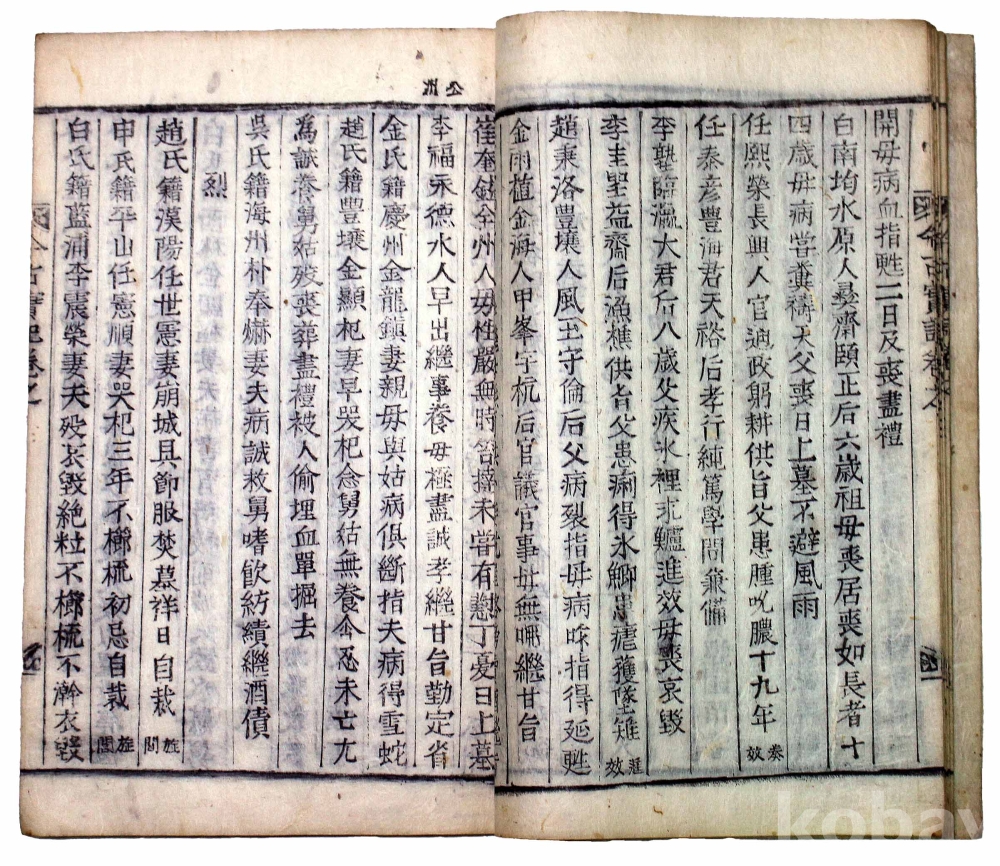 公州
開母病血指甦二日反喪盡禮
白南均水原人彛齋頤正后六歲祖母喪居喪如長者十
四歲母病甞糞禱天父喪日上墓不避風雨
任熙榮長興人官通政躬耕供旨父患腫吮膿十九年
任泰彦豊海君天裕后孝行純篤學問兼備
李塾臨瀛大君后八歲父疾氷裡求鱸進效母喪哀毁
李圭聖益齋后漁樵供旨父患痢得氷鯽患瘧獲墜雉
趙秉洛豊壤人風玉守倫后父病裂指母病㫾指得延甦
金雨植金海人甲峯字杭后官議官事母無 繼甘旨
崔 鉉全州人母性嚴無時笞 未甞有 丁憂日上墓
李福永德水人早出繼事養母極盡誠孝繼甘旨勤定省
金氏籍慶州金龍鎮妻親母與姑病俱斷指夫病得雪蛇
趙氏籍豊壤金顯杞妻早哭杞念舅姑無養含忍未亡九
為誠養舅姑殁喪葬盡禮被人偷埋血單掘去
吳氏籍海州朴奉爀妻夫病誠救舅嗜飮紡績繼酒債
烈
趙氏籍漢陽任世憲妻崩城具飾服焚慕祥日自裁 旌閭
申氏籍平山任憲順妻哭杞三年不櫛梳初忌自裁 旌閭
白氏籍藍浦李震榮妻夫殁哀毁絶粒不櫛梳不澣衣毁